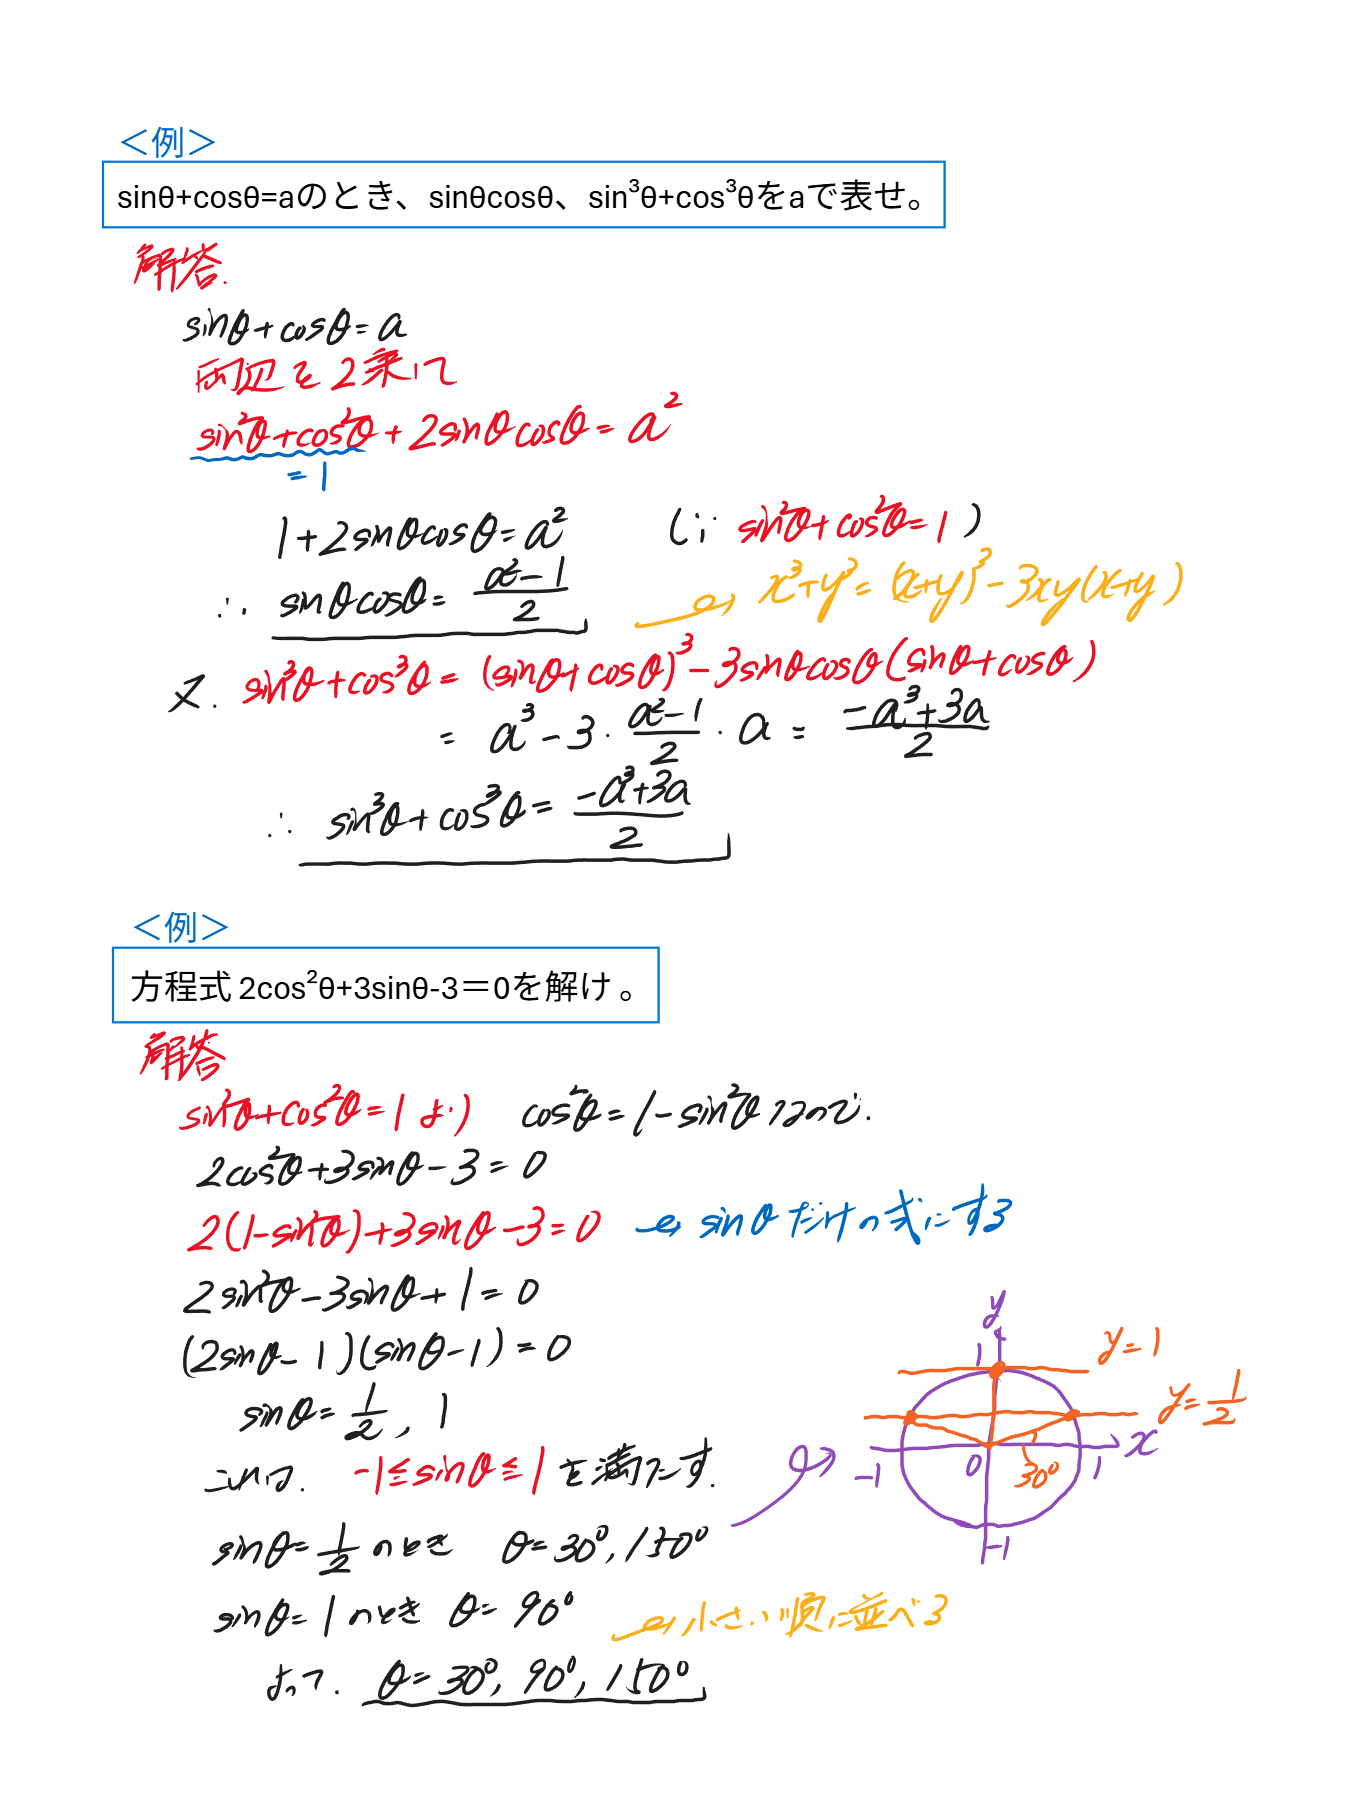 ＜例＞
sinθ+cosθ=aのとき、sinθcosθ、sin³θ+cos³θをaで表せ。
解答.
sinθ+cosθ=a
両辺を2乗して
sin²θ+cos²θ+2sinθcosθ=a²
=1
1+2sinθcosθ=a² (∵ sin²θ+cos²θ=1)
∴ sinθcosθ=(a²-1)/2
x³+y³=(x+y)³-3xy(x+y)
又. sin³θ+cos³θ=(sinθ+cosθ)³-3sinθcosθ(sinθ+cosθ)
= a³-3・(a²-1)/2・a = (-a³+3a)/2
∴ sin³θ+cos³θ=(-a³+3a)/2
＜例＞
方程式 2cos²θ+3sinθ-3＝0を解け 。
解答
sin²θ+cos²θ=1 より cos²θ=1-sin²θ なので.
2cos²θ+3sinθ-3=0
2(1-sin²θ)+3sinθ-3=0 sinθだけの式にする
2sin²θ-3sinθ+1=0
(2sinθ-1)(sinθ-1)=0
sinθ=1/2, 1
これは. -1≦sinθ≦1 を満たす.
sinθ=1/2 のとき θ=30°, 150°
sinθ=1 のとき θ=90° 小さい順に並べる
よって. θ=30°, 90°, 150°
y
1
y=1
y=1/2
x
-1
0
30°
1
-1